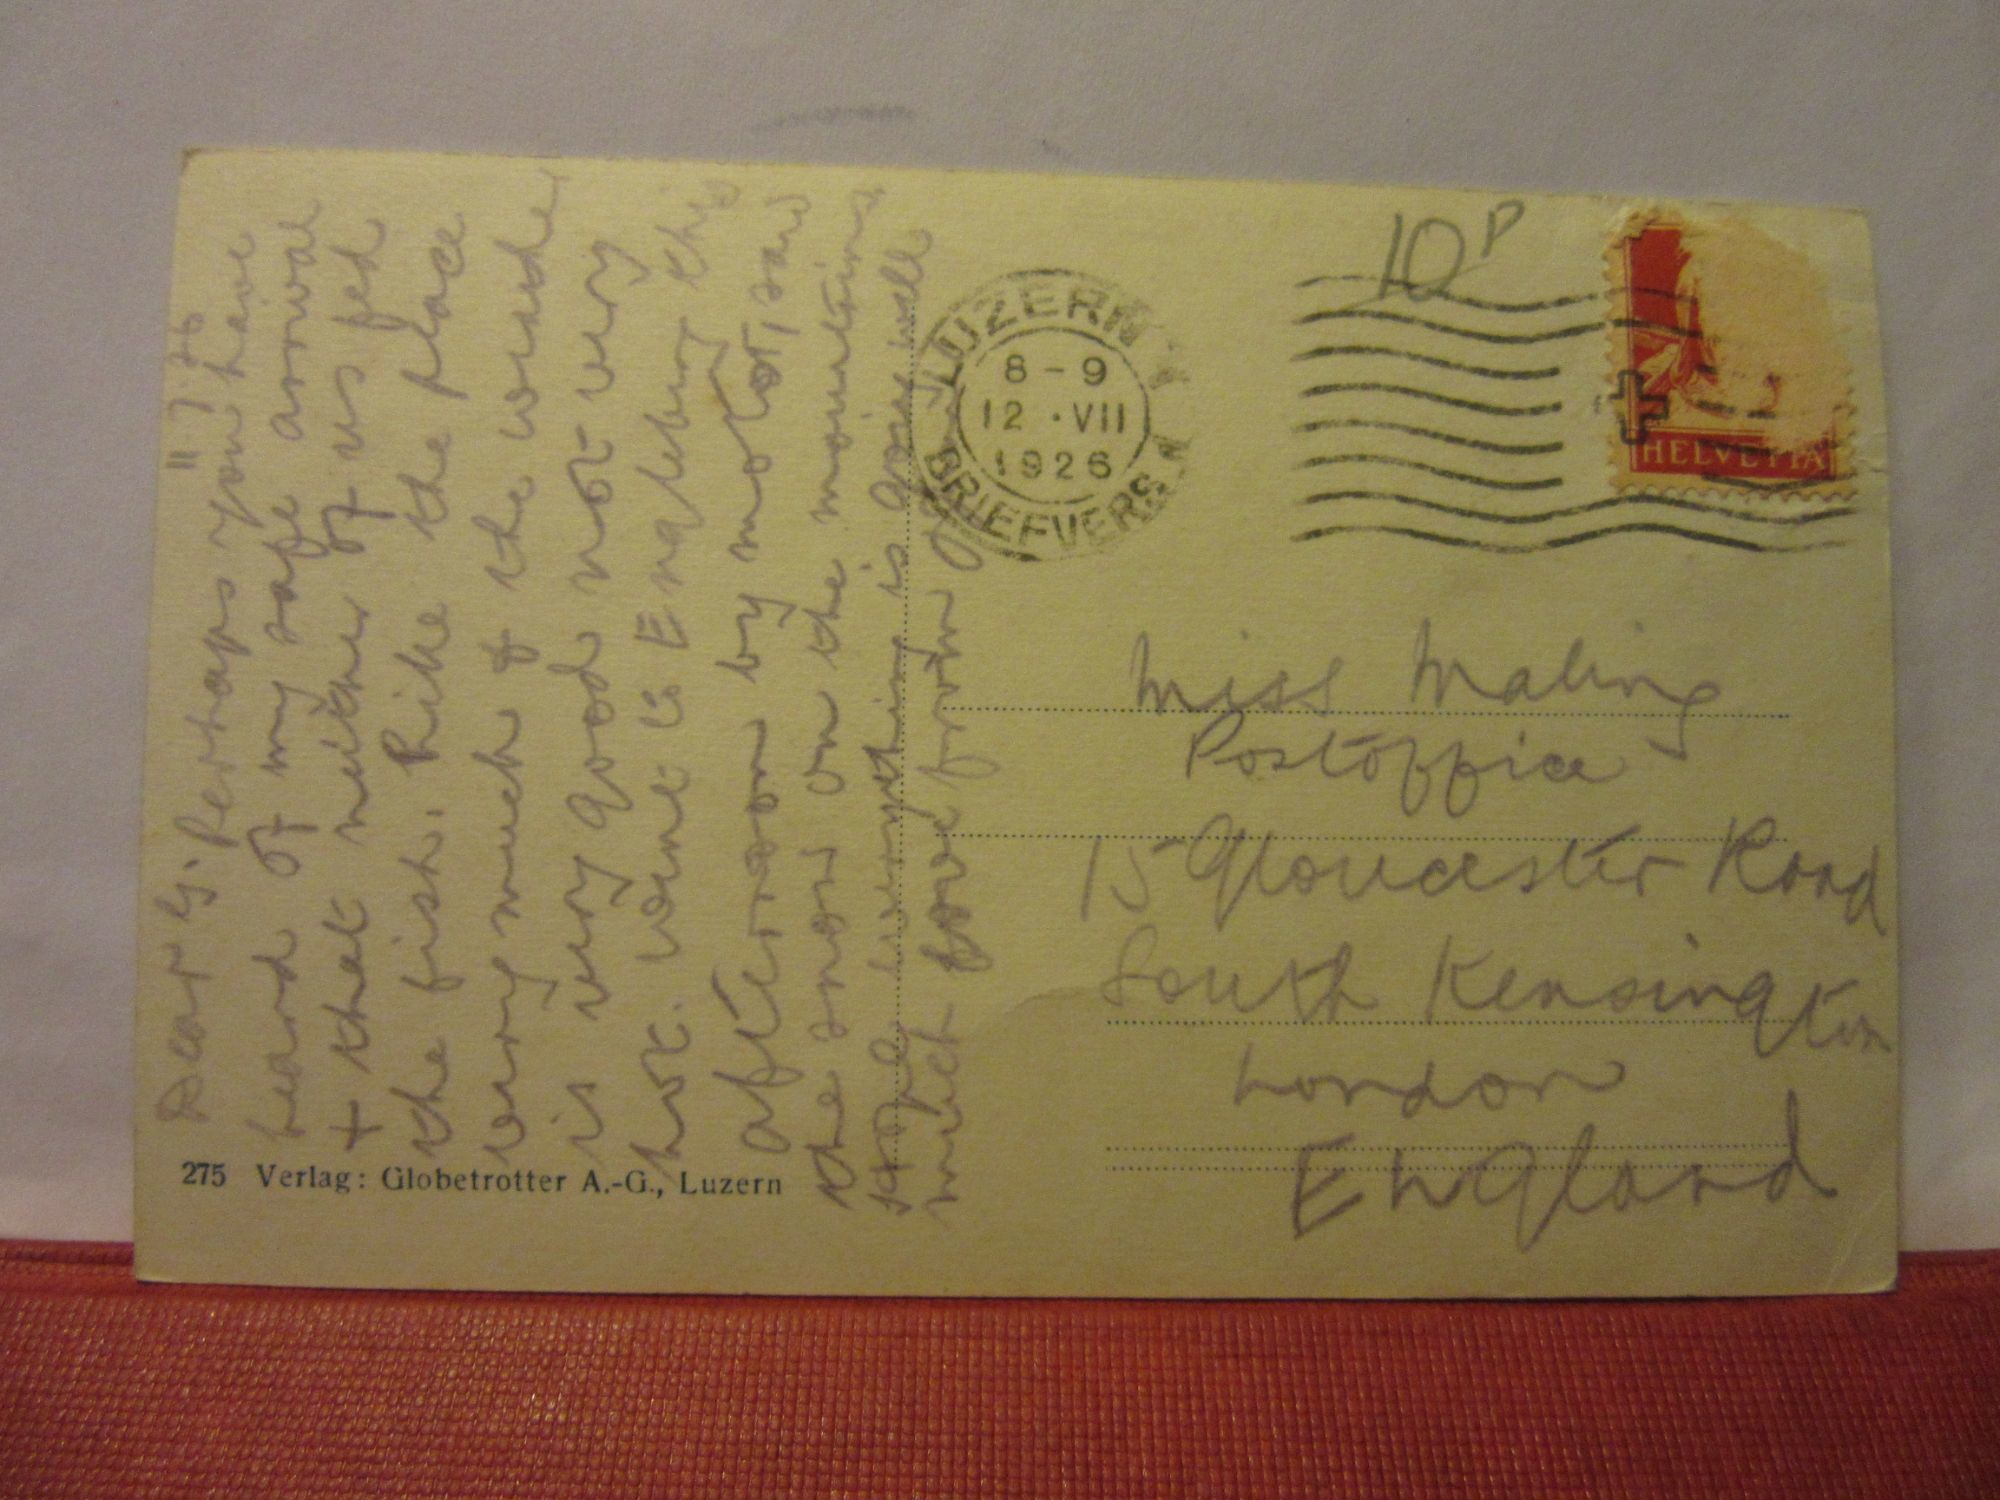 11.7.26
Dear G. Perhaps you have
heard of my safe arrival
+ that neither of us fed
the fish. I like the place
very much & the weather
is very good not very
hot. Went to Engleberg this
afternoon by motor, saw
the snow on the mountains
Hope everything is going well
much love from
275 Verlag: Globetrotter A.-G., Luzern
LUZERN
8-9
12.VII
1926
BRIEFVERS.
10P
HELVETIA
Miss Maling
Postoffice
15 Gloucester Road
South Kensington
London
England